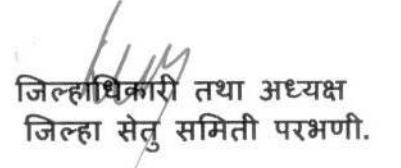 जिल्हाधिकारी तथा अध्यक्ष
जिल्हा सेतु समिती परभणी.